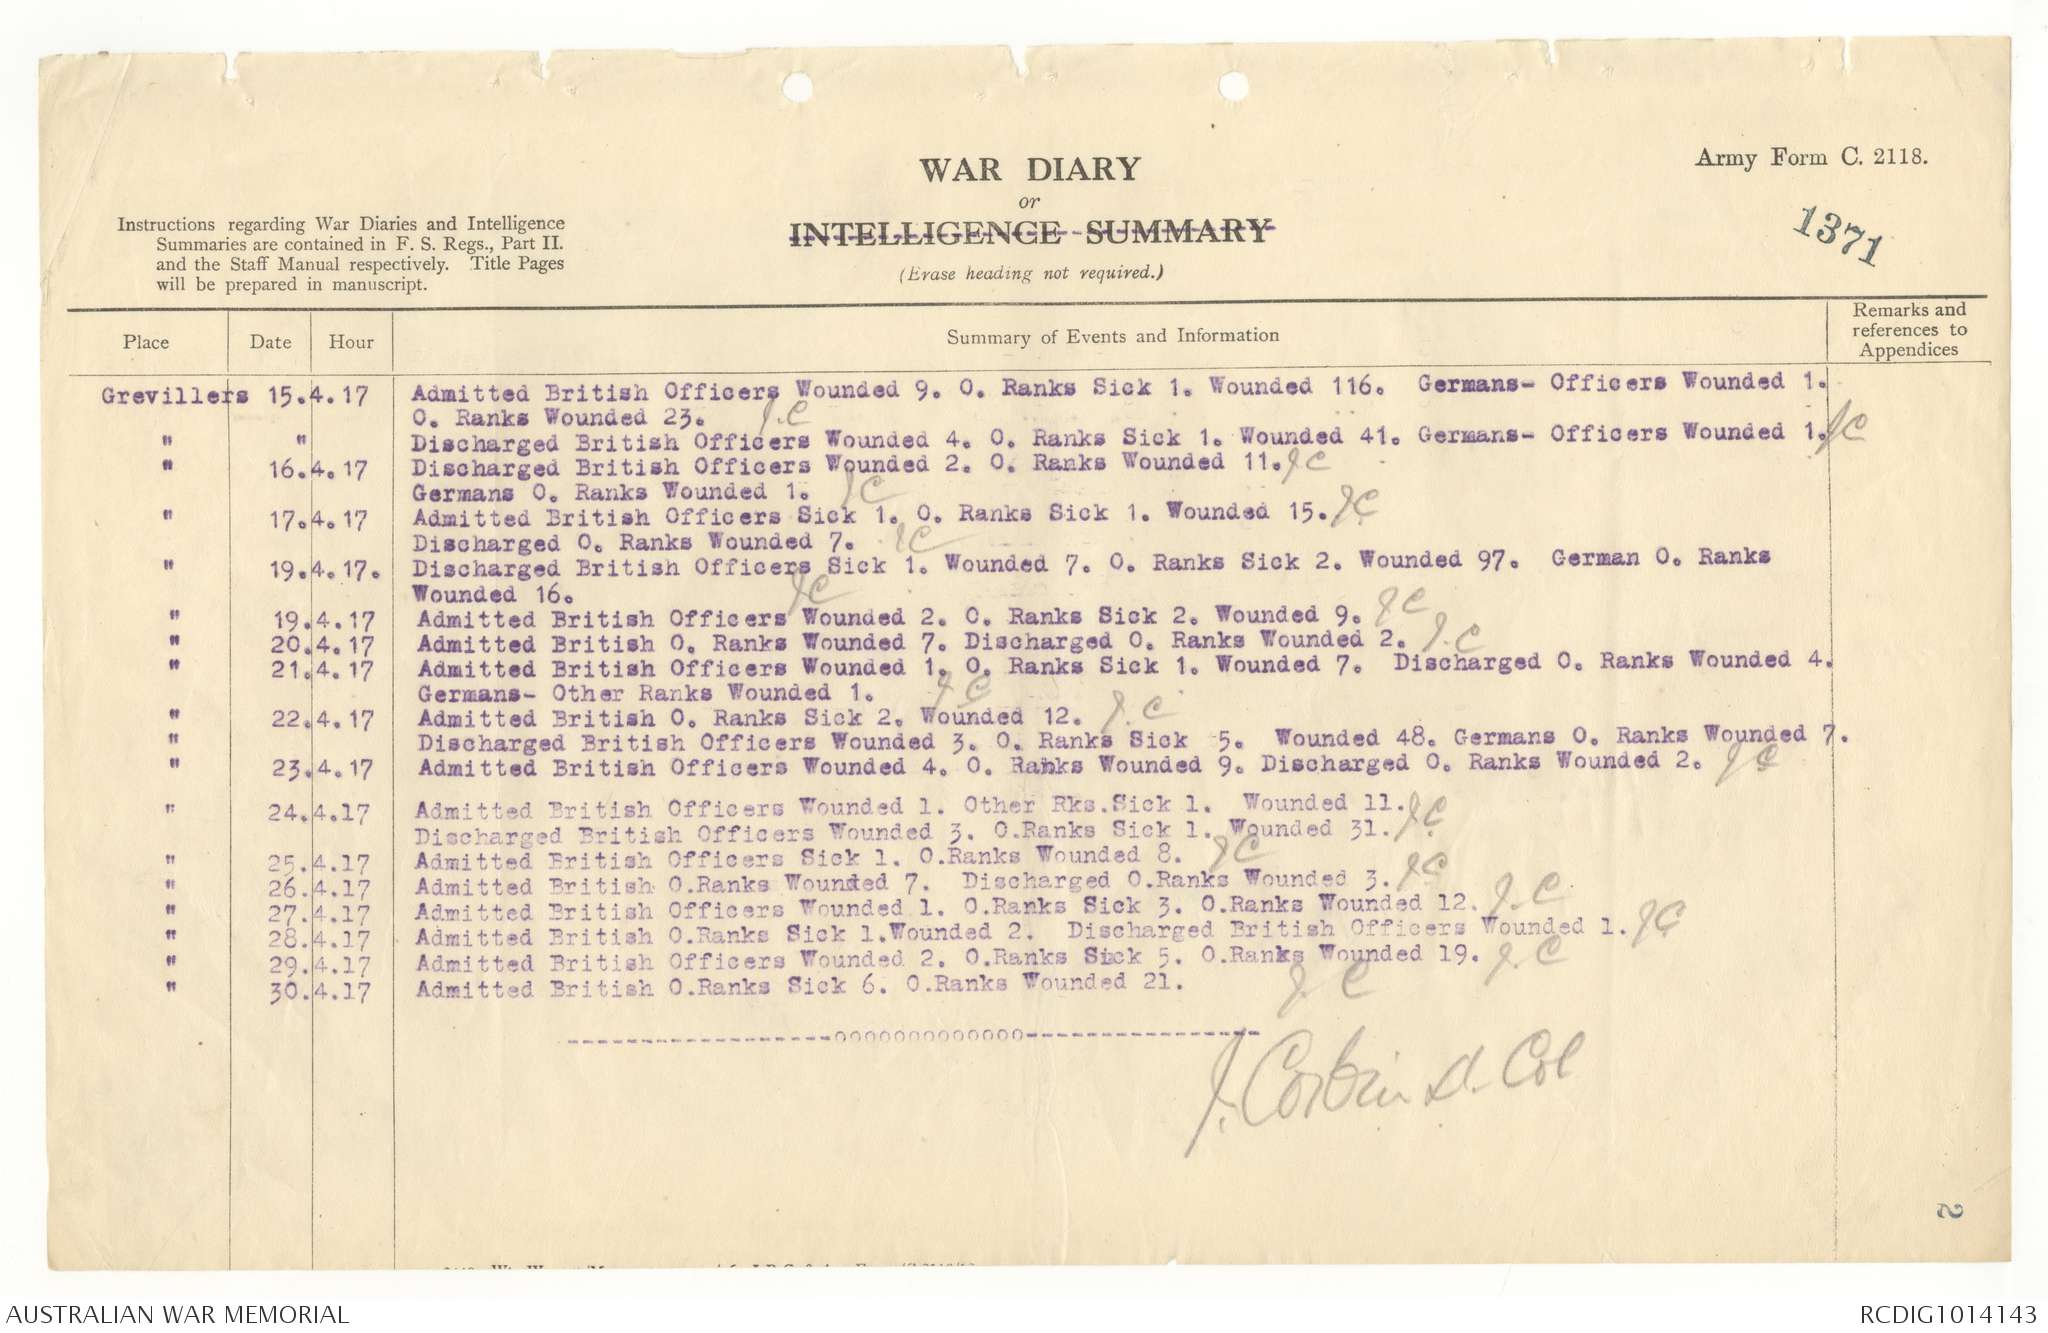 WAR DIARY
or
INTELLIGENCE SUMMARY
(Erase heading not required.)
Army Form C. 2118.
1371
Instructions regarding War Diaries and Intelligence
Summaries are contained in F. S. Regs., Part II.
and the Staff Manual respectively. Title Pages
will be prepared in manuscript.
Place Date Hour Summary of Events and Information Remarks and references to Appendices
Grevillers 15.4.17 Admitted British Officers Wounded 9. O. Ranks Sick 1. Wounded 116. Germans- Officers Wounded 1.
O. Ranks Wounded 23. J.C
" " Discharged British Officers Wounded 4. O. Ranks Sick 1. Wounded 41. Germans- Officers Wounded 1. JC
" 16.4.17 Discharged British Officers Wounded 2. O. Ranks Wounded 11. JC
Germans O. Ranks Wounded 1. JC
" 17.4.17 Admitted British Officers Sick 1. O. Ranks Sick 1. Wounded 15. JC
Discharged O. Ranks Wounded 7. JC
" 19.4.17. Discharged British Officers Sick 1. Wounded 7. O. Ranks Sick 2. Wounded 97. German O. Ranks
Wounded 16. JC
" 19.4.17 Admitted British Officers Wounded 2. O. Ranks Sick 2. Wounded 9. JC
" 20.4.17 Admitted British O. Ranks Wounded 7. Discharged O. Ranks Wounded 2. J.C
" 21.4.17 Admitted British Officers Wounded 1. O. Ranks Sick 1. Wounded 7. Discharged O. Ranks Wounded 4.
Germans- Other Ranks Wounded 1. JC
" 22.4.17 Admitted British O. Ranks Sick 2. Wounded 12. J.C
" Discharged British Officers Wounded 3. O. Ranks Sick 5. Wounded 48. Germans O. Ranks Wounded 7.
" 23.4.17 Admitted British Officers Wounded 4. O. Ranks Wounded 9. Discharged O. Ranks Wounded 2. JC
" 24.4.17 Admitted British Officers Wounded 1. Other Rks.Sick 1. Wounded 11. JC
Discharged British Officers Wounded 3. O.Ranks Sick 1. Wounded 31.
" 25.4.17 Admitted British Officers Sick 1. O.Ranks Wounded 8. JC
" 26.4.17 Admitted British O.Ranks Wounded 7. Discharged O.Ranks Wounded 3. JC
" 27.4.17 Admitted British Officers Wounded 1. O.Ranks Sick 3. O.Ranks Wounded 12. J.C
" 28.4.17 Admitted British O.Ranks Sick 1.Wounded 2. Discharged British Officers Wounded 1. JC
" 29.4.17 Admitted British Officers Wounded 2. O.Ranks Sick 5. O.Ranks Wounded 19. J.C
" 30.4.17 Admitted British O.Ranks Sick 6. O.Ranks Wounded 21. J.C
------------------ooooooooooooo----------------
J. Corbin Lt. Col
2
AUSTRALIAN WAR MEMORIAL RCDIG1014143